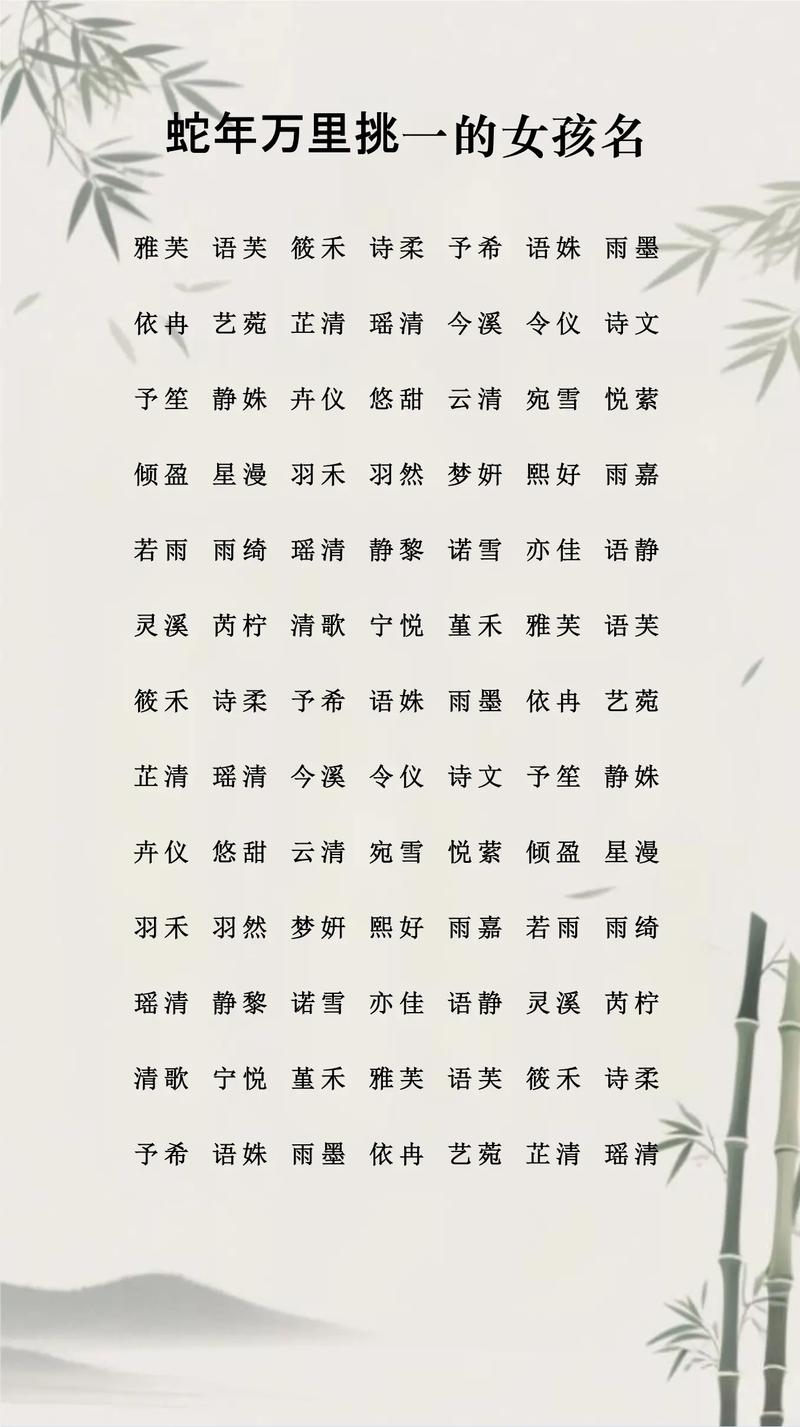 蛇年万里挑一的女孩名
雅芙 语芙 筱禾 诗柔 予希 语姝 雨墨
依冉 艺菀 芷清 瑶清 今溪 令仪 诗文
予笙 静姝 卉仪 悠甜 云清 宛雪 悦萦
倾盈 星漫 羽禾 羽然 梦妍 熙好 雨嘉
若雨 雨绮 瑶清 静黎 诺雪 亦佳 语静
灵溪 芮柠 清歌 宁悦 堇禾 雅芙 语芙
筱禾 诗柔 予希 语姝 雨墨 依冉 艺菀
芷清 瑶清 今溪 令仪 诗文 予笙 静姝
卉仪 悠甜 云清 宛雪 悦萦 倾盈 星漫
羽禾 羽然 梦妍 熙好 雨嘉 若雨 雨绮
瑶清 静黎 诺雪 亦佳 语静 灵溪 芮柠
清歌 宁悦 堇禾 雅芙 语芙 筱禾 诗柔
予希 语姝 雨墨 依冉 艺菀 芷清 瑶清